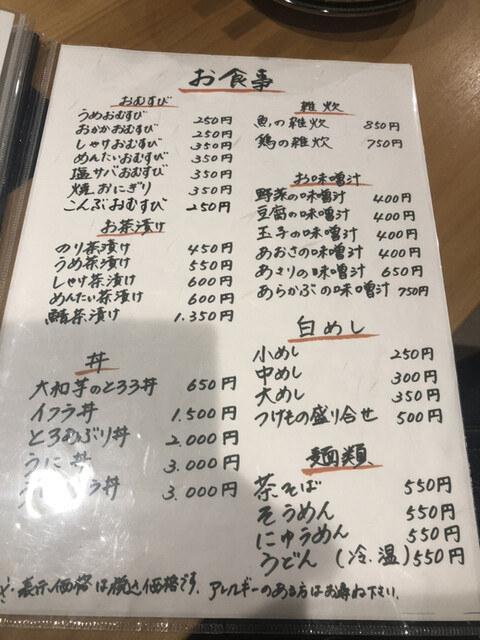 お食事
おむすび
うめおむすび 250円
おかかおむすび 250円
しゃけおむすび 350円
めんたいおむすび 350円
塩サバおむすび 350円
焼おにぎり 350円
こんぶおむすび 250円
お茶漬け
のり茶漬け 450円
うめ茶漬け 550円
しゃけ茶漬け 600円
めんたい茶漬け 600円
鯖茶漬け 1,350円
丼
大和芋のとろろ丼 650円
イクラ丼 1,500円
とろ ぶり丼 2,000円
うに丼 3,000円
丼 3,000円
雑炊
魚の雑炊 850円
鶏の雑炊 750円
お味噌汁
野菜の味噌汁 400円
豆腐の味噌汁 400円
玉子の味噌汁 400円
あおさの味噌汁 400円
あさりの味噌汁 650円
あらかぶの味噌汁 750円
白めし
小めし 250円
中めし 300円
大めし 350円
つけもの盛り合せ 500円
麺類
茶そば 550円
そうめん 550円
にゅうめん 550円
うどん(冷、温) 550円
表示価格は税込価格です。アレルギーのある方はお尋ね下さい。